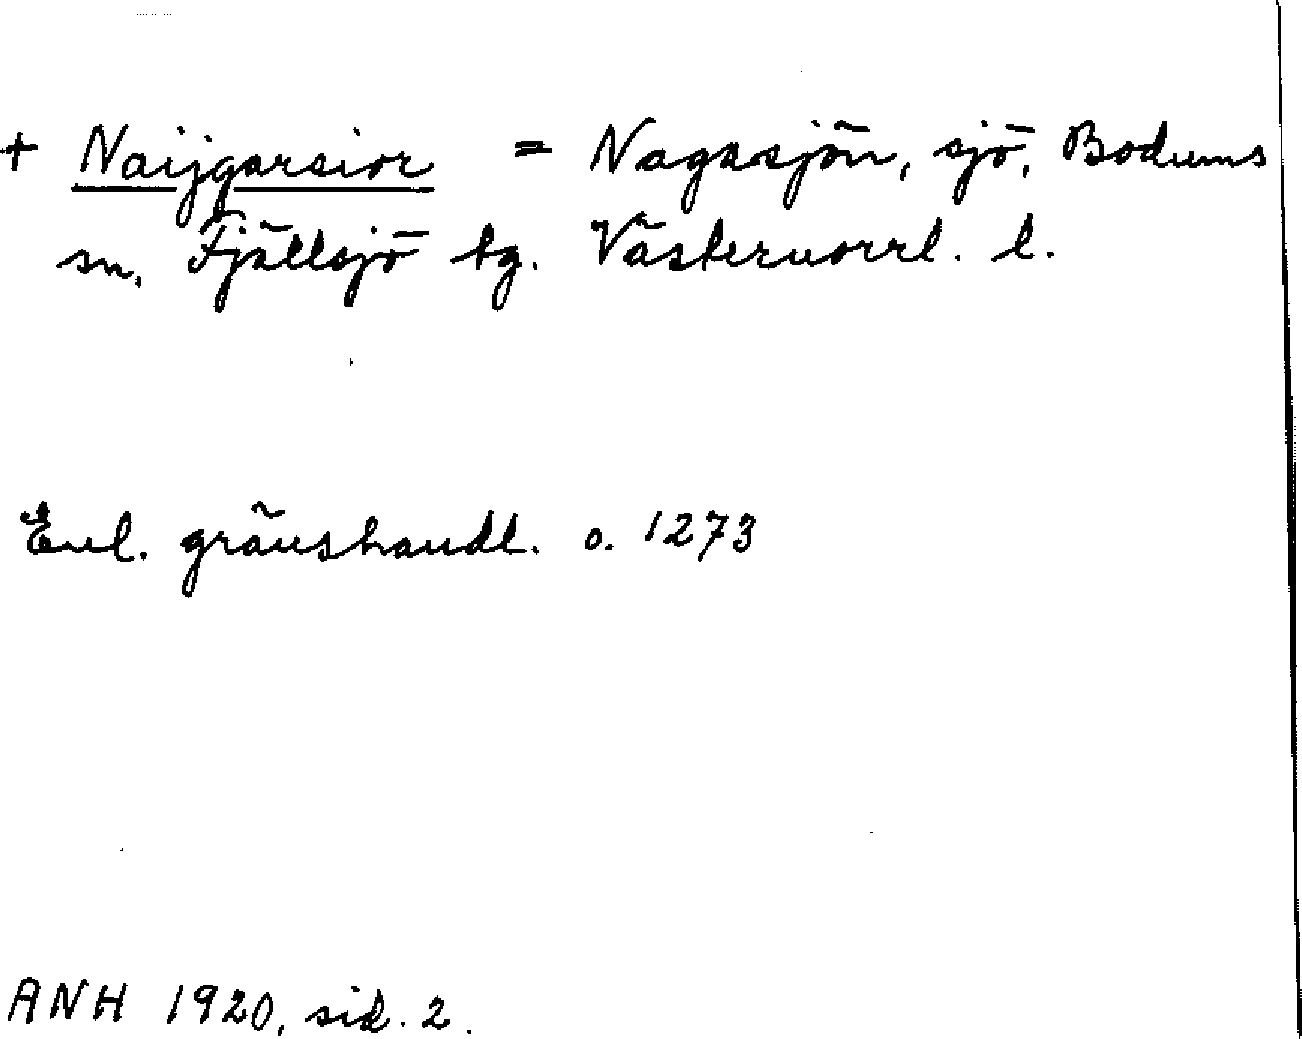 + Naijgarsior = Nagasjön, sjö, Bodums
sn, Fjällsjö tg. Västernorrl. l.
Enl. gränshandl. o. 1273
ANH 1920, sid. 2.